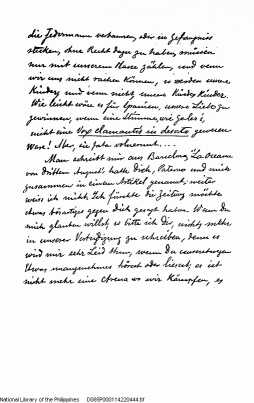 die Jedermann verbannen, oder in Gefängniss
stecken, ohne Recht dazu zu haben, müssen
nur mit unserem Hasse zählen, und wenn
wir uns nicht rächen können, so werden unsere
Kinder, und wenn nicht, unsere Kindes Kinder.
Wie leicht wäre es für Spanien, unsere Liebe zu
gewinnen, wenn eine Stimme, wie
nicht eine Vox clamantis in deserto gewesen
wäre! Aber, die fata volverunt....
Man schreibt mir aus Barcelona, La Oceania
vom dritten August hatte Dich, Paterno und mich
zusammen in einem Artikel genannt; weiter
weiss ich nicht. Ich fürchte die Zeitung möchte
etwas bösartiges gegen dich gesagt haben. Wenn du
mir glauben willst, so bitte ich dir, nichts mehr
in unserer Vertheidigung zu schreiben, denn es
wird mir sehr Leid thun, wenn Du
etwas unangenehmes hörest oder liesest; es ist
nicht mehr eine Arena wo wir kämpfen, es
National Library of the Philippines DG65P00011422044.tif